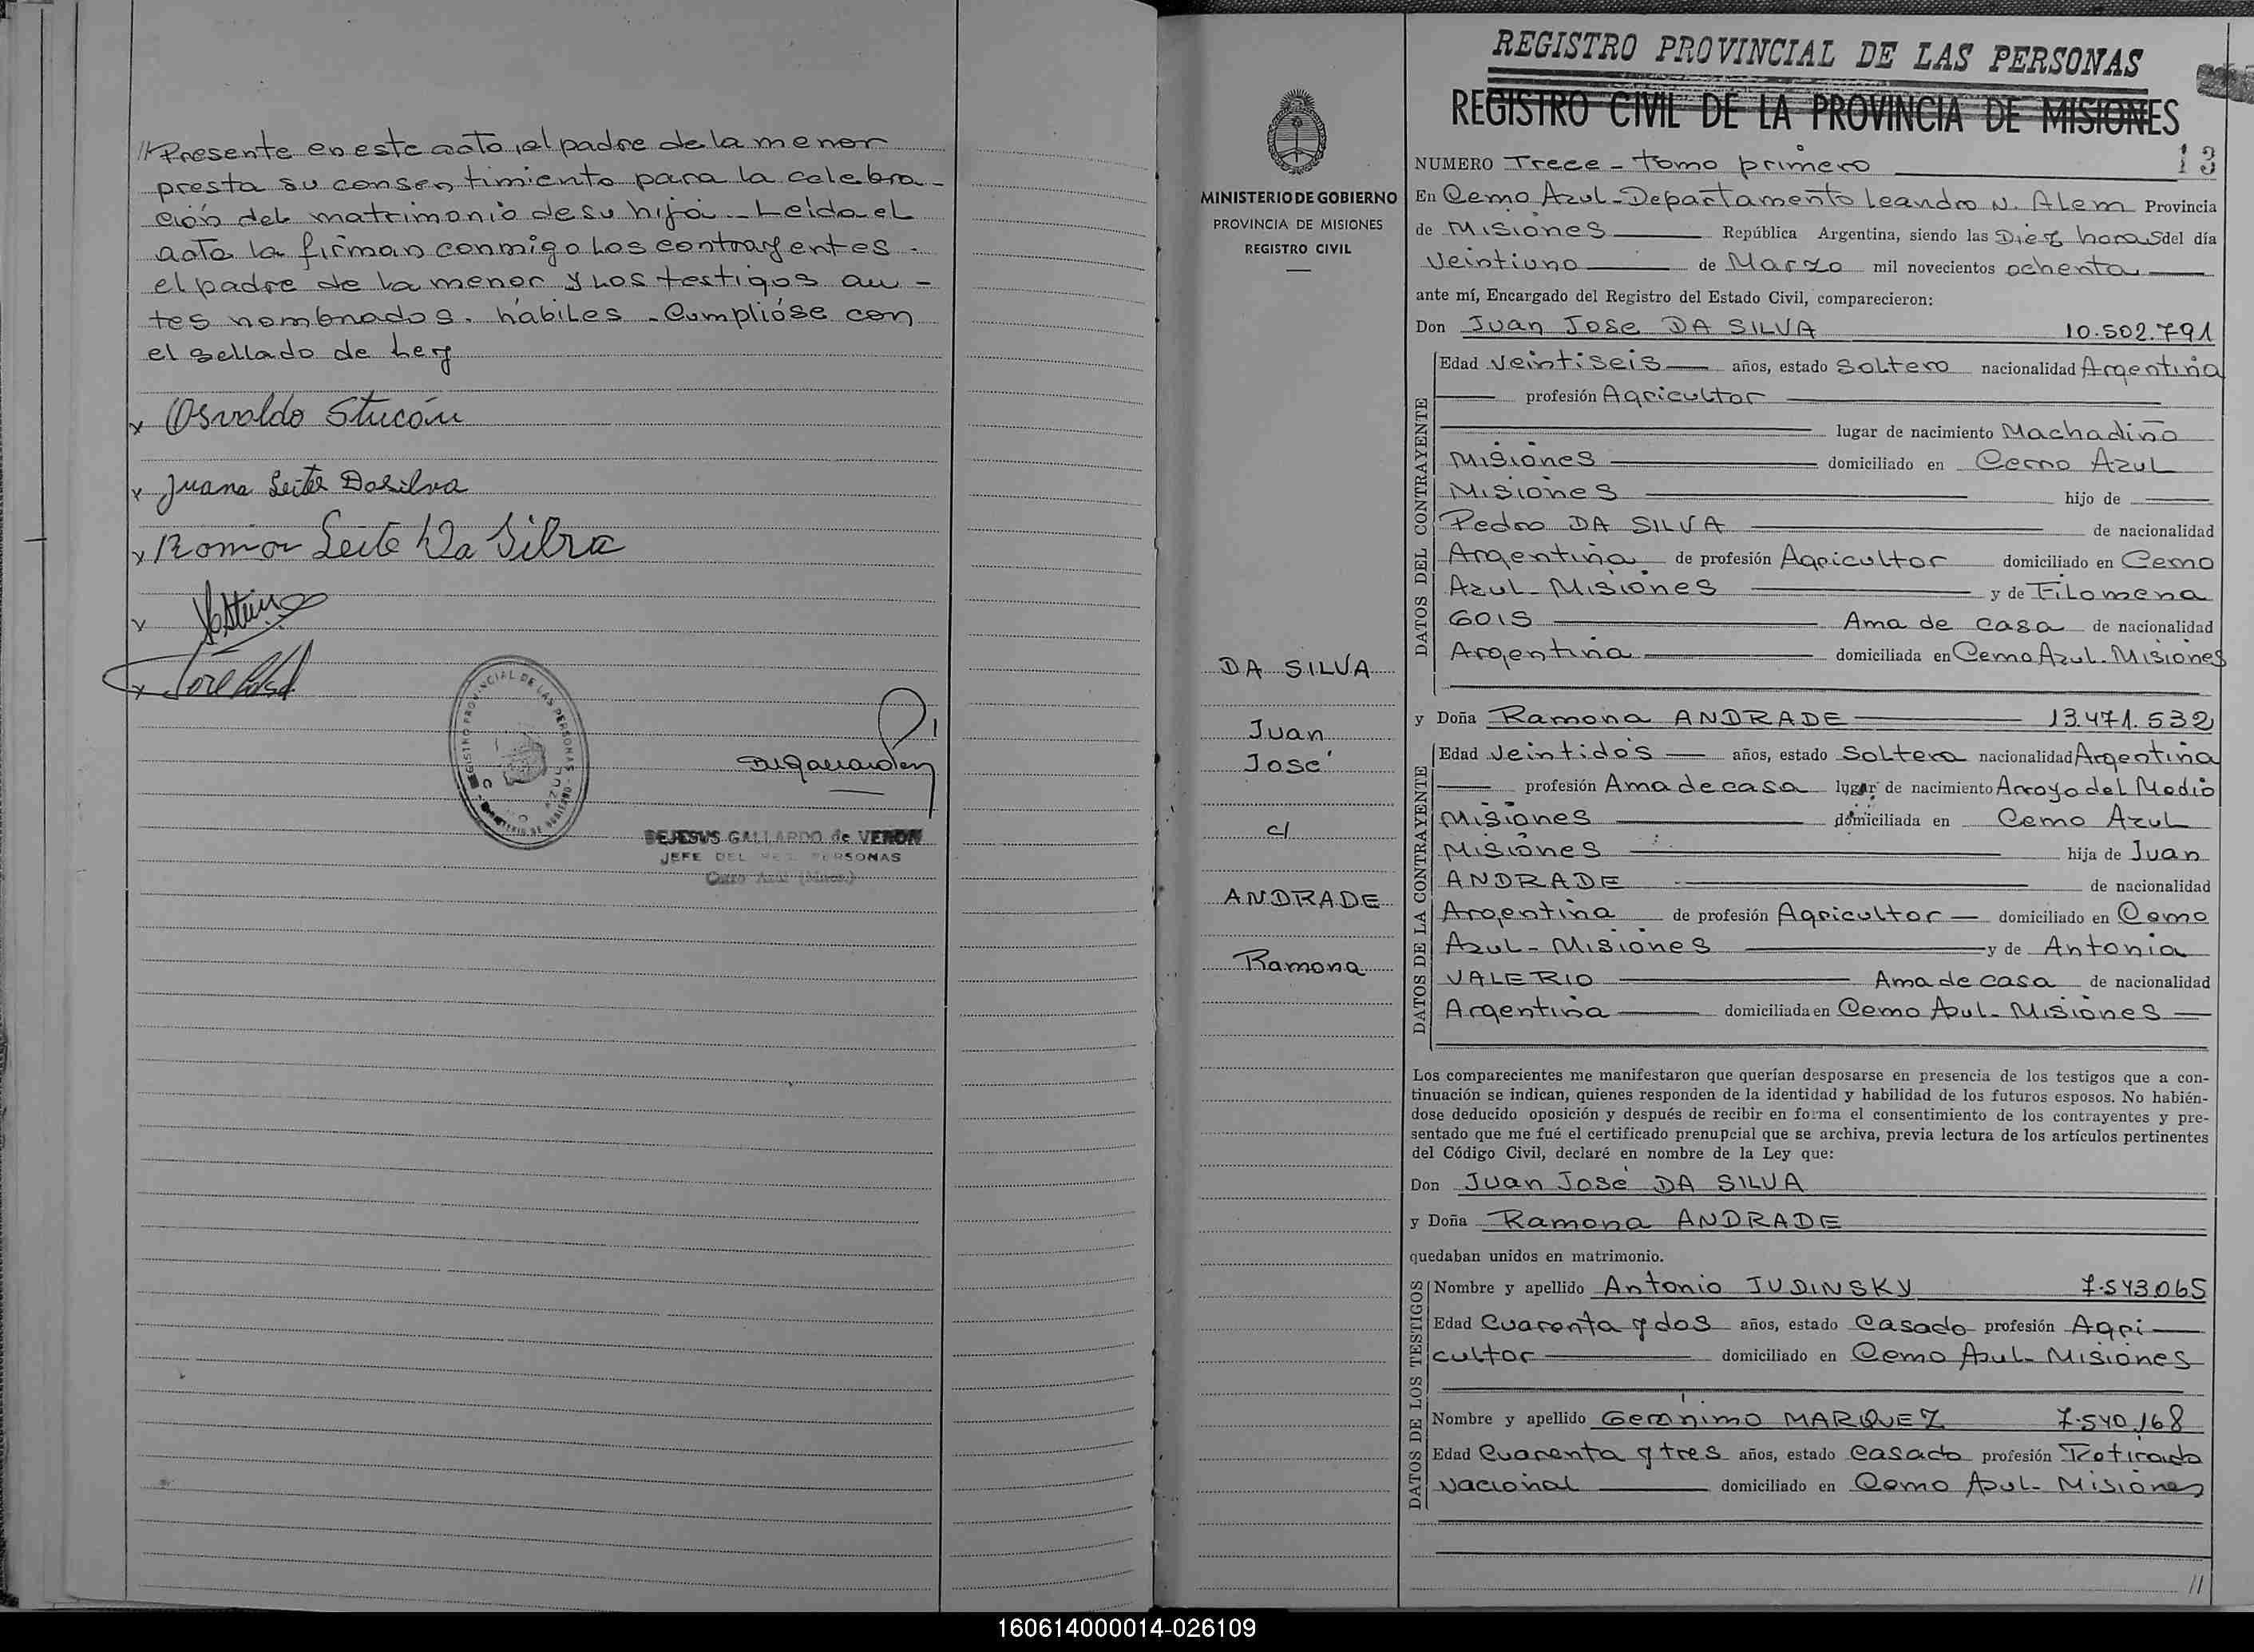 // Presente en este acto, el padre de la menor
presta su consentimiento para la celebra-
ción del matrimonio de su hija - Leída el
acta la firman conmigo los contrayentes -
el padre de la menor y los testigos an-
tes nombrados. hábiles - Cumplióse con
el sellado de Ley
x Osvaldo
x Juana Leite Dasilva
x Ramon Leite Da Silva
x
x
DEJESUS GALLARDO de VERON
JEFE DEL REG. PERSONAS
Cerro Azul (Mnes.)
MINISTERIO DE GOBIERNO
PROVINCIA DE MISIONES
REGISTRO CIVIL
DA SILVA
Juan
José
c/
ANDRADE
Ramona
REGISTRO PROVINCIAL DE LAS PERSONAS
REGISTRO CIVIL DE LA PROVINCIA DE MISIONES
NUMERO Trece - tomo primero 13
En Cerro Azul - Departamento Leandro N. Alem Provincia
de Misiones República Argentina, siendo las Diez horas del día
Veintiuno de Marzo mil novecientos ochenta
ante mí, Encargado del Registro del Estado Civil, comparecieron:
Don Juan José DA SILVA 10.502.791
DATOS DEL CONTRAYENTE
Edad Veintiseis años, estado Soltero nacionalidad Argentina
profesión Agricultor
lugar de nacimiento Machadiño
Misiones domiciliado en Cerro Azul
Misiones hijo de
Pedro DA SILVA de nacionalidad
Argentina de profesión Agricultor domiciliado en Cerro
Azul - Misiones y de Filomena
GOIS Ama de casa de nacionalidad
Argentina domiciliada en Cerro Azul. Misiones
y Doña Ramona ANDRADE 13.471.532
DATOS DE LA CONTRAYENTE
Edad Veintidos años, estado Soltera nacionalidad Argentina
profesión Ama de casa lugar de nacimiento Arroyo del Medio
Misiones domiciliada en Cerro Azul
Misiones hija de Juan
ANDRADE de nacionalidad
Argentina de profesión Agricultor domiciliado en Cerro
Azul - Misiones y de Antonia
VALERIO Ama de casa de nacionalidad
Argentina domiciliada en Cerro Azul - Misiones
Los comparecientes me manifestaron que querían desposarse en presencia de los testigos que a con-
tinuación se indican, quienes responden de la identidad y habilidad de los futuros esposos. No habién-
dose deducido oposición y después de recibir en forma el consentimiento de los contrayentes y pre-
sentado que me fué el certificado prenupcial que se archiva, previa lectura de los artículos pertinentes
del Código Civil, declaré en nombre de la Ley que:
Don Juan José DA SILVA
y Doña Ramona ANDRADE
quedaban unidos en matrimonio.
DATOS DE LOS TESTIGOS
Nombre y apellido Antonio JUDINSKY 7.543.065
Edad Cuarenta y dos años, estado Casado profesión Agri-
cultor domiciliado en Cerro Azul - Misiones
Nombre y apellido Gerónimo MARQUEZ 7.540.168
Edad Cuarenta y tres años, estado Casado profesión Retirado
Nacional domiciliado en Cerro Azul - Misiones
//
160614000014-026109